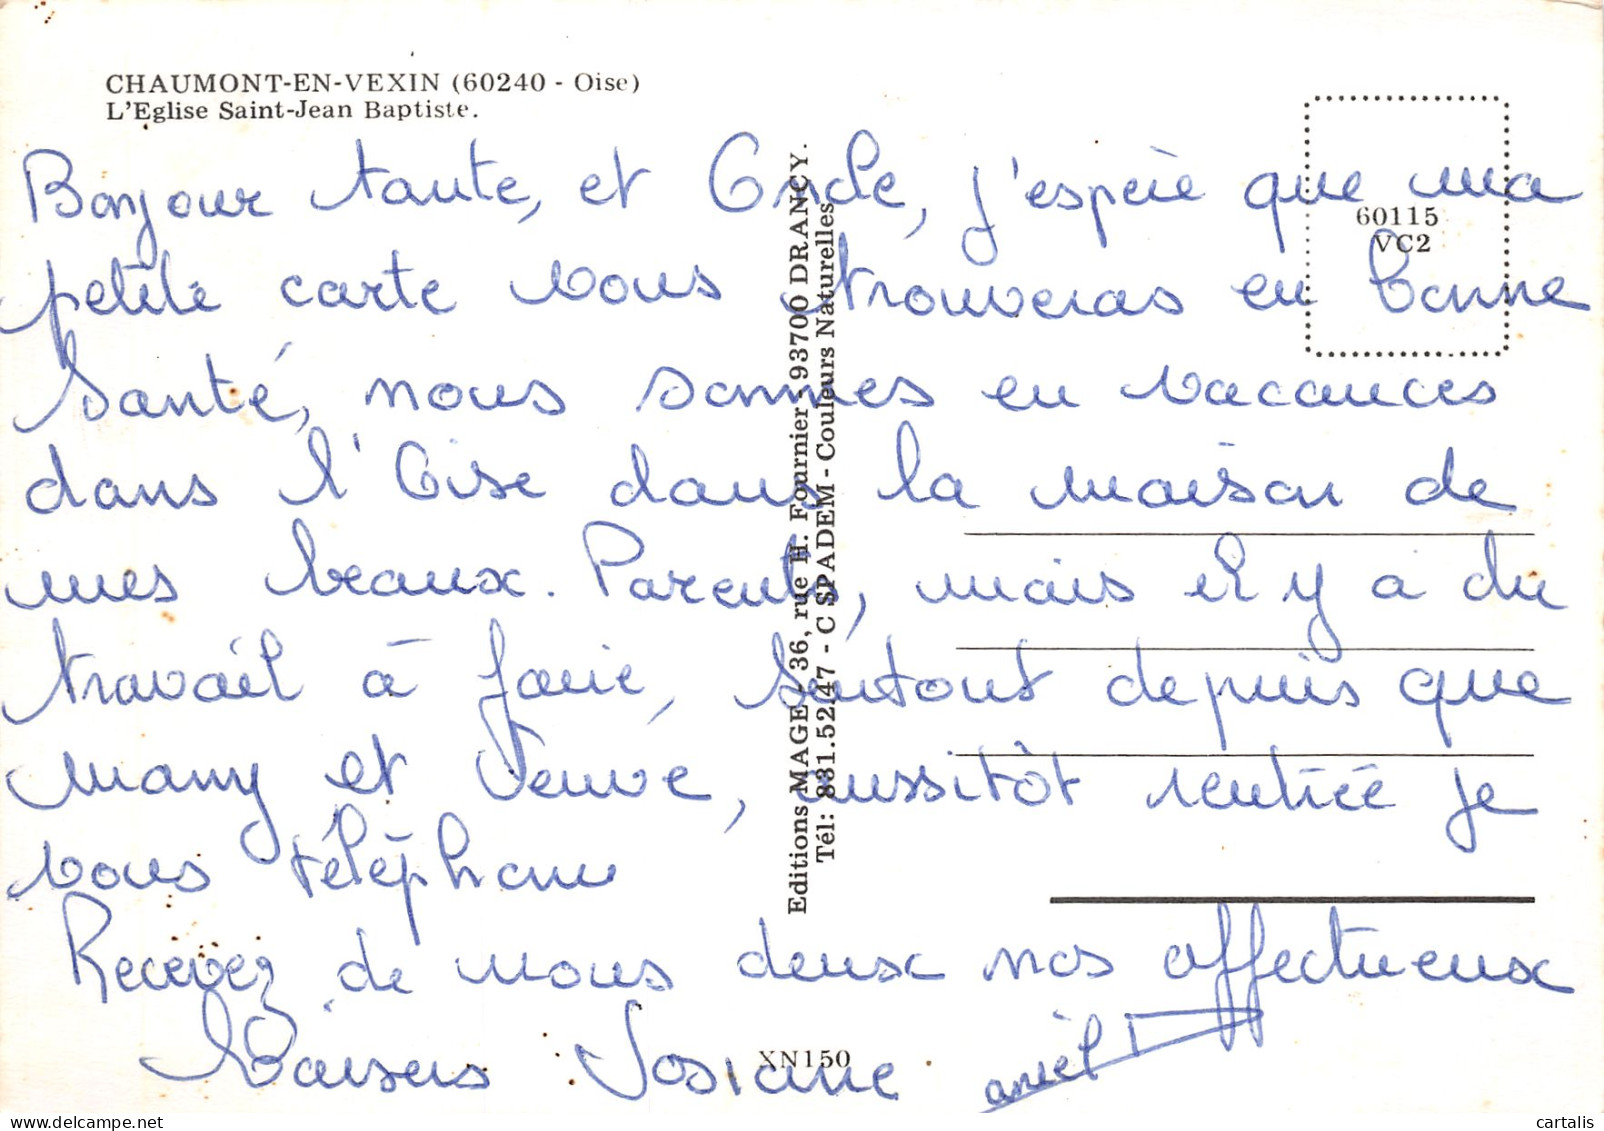 CHAUMONT-EN-VEXIN (60240 - Oise)
L'Eglise Saint-Jean Baptiste.
60115
VC2
Bonjour tante, et Oncle, j'espère que ma
petite carte vous trouveras en bonne
Santé, nous sommes en vacances
dans l'Oise dans la maison de
mes beaux. Parents, mais il y a du
travail à faire, surtout depuis que
Mamy et veuve, aussitôt rentrée je
vous téléphone
Recevez de nous deux nos affectueux
Baisers Josiane
Editions MAGE - 36, rue H. Fournier - 93700 DRANCY.
Tél: 881.52.47 - C SPADEM - Couleurs Naturelles
XN150
cartalis
www.delcampe.net